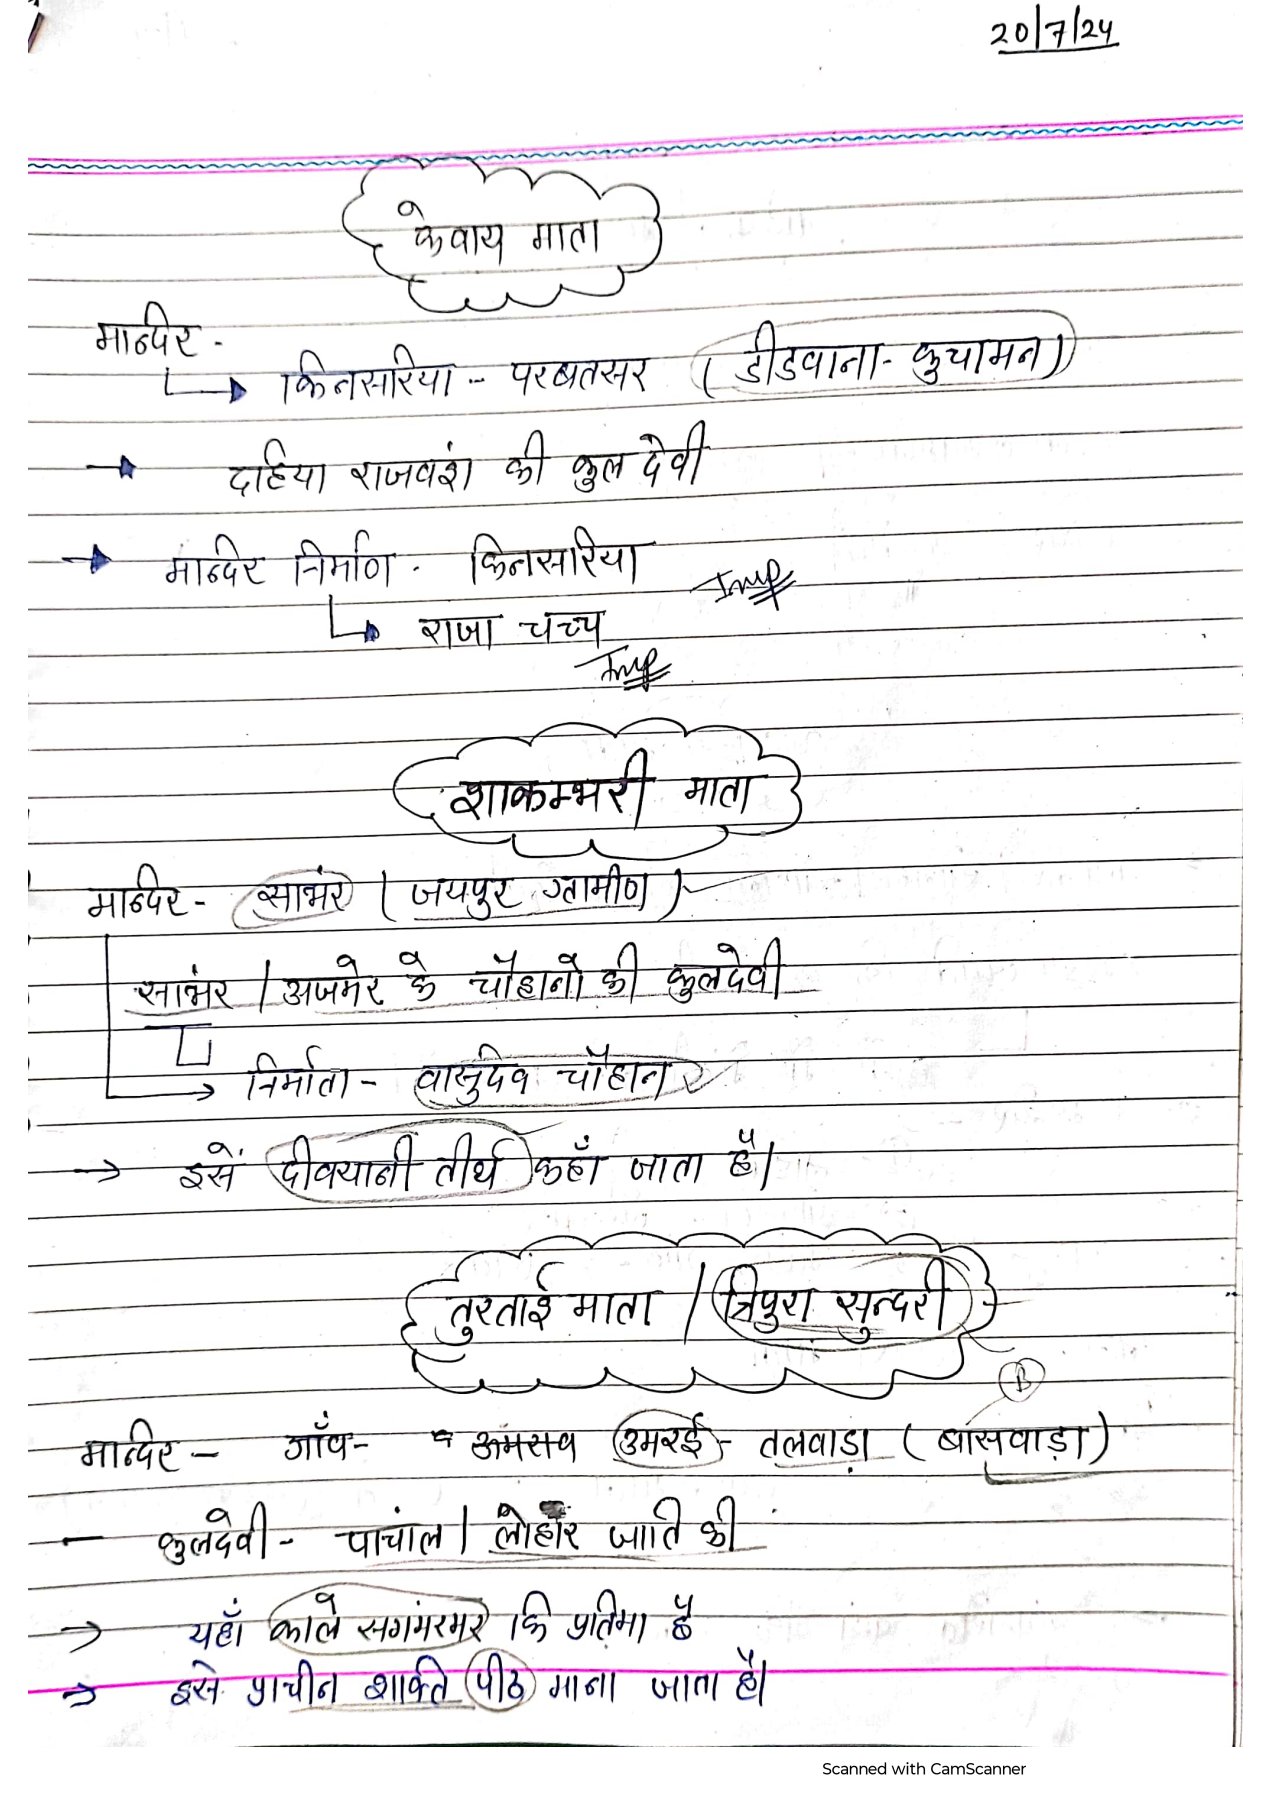 20/7/24
केवाय माता
मन्दिर -
किनसरिया - परबतसर (डीडवाना - कुचामन)
दहिया राजवंश की कुल देवी
मन्दिर निर्माण - किनसरिया Imp
राजा चच्च
Imp
शाकम्भरी माता
मन्दिर - सांभर (जयपुर ग्रामीण)
सांभर / अजमेर के चौहानो की कुलदेवी
निर्माता - वासुदेव चौहान
इसें दीवयानी तीर्थ कहाँ जाता है।
तुरताई माता / त्रिपुरा सुन्दरी
B
मन्दिर - गाँव - उमरई - तलवाड़ा (बांसवाड़ा)
कुलदेवी - पाचांल / लोहार जाति की
यहाँ काले सगमंरमर कि प्रतिमा है
इसे प्राचीन शक्ति पीठ माना जाता है।
Scanned with CamScanner